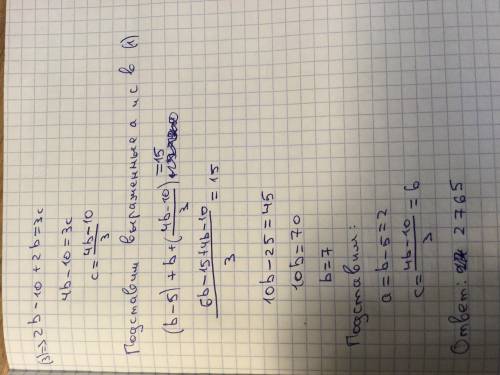 (3) => 2b - 10 + 2b = 3c
4b - 10 = 3c
c = \frac{4b-10}{3}
Подставим выраженные a и c в (1)
(b-5) + b + (\frac{4b-10}{3}) = 15
\frac{6b-15+4b-10}{3} = 15
10b - 25 = 45
10b = 70
b = 7
Подставим:
a = b - 5 = 2
c = \frac{4b-10}{3} = 6
Ответ: 2765